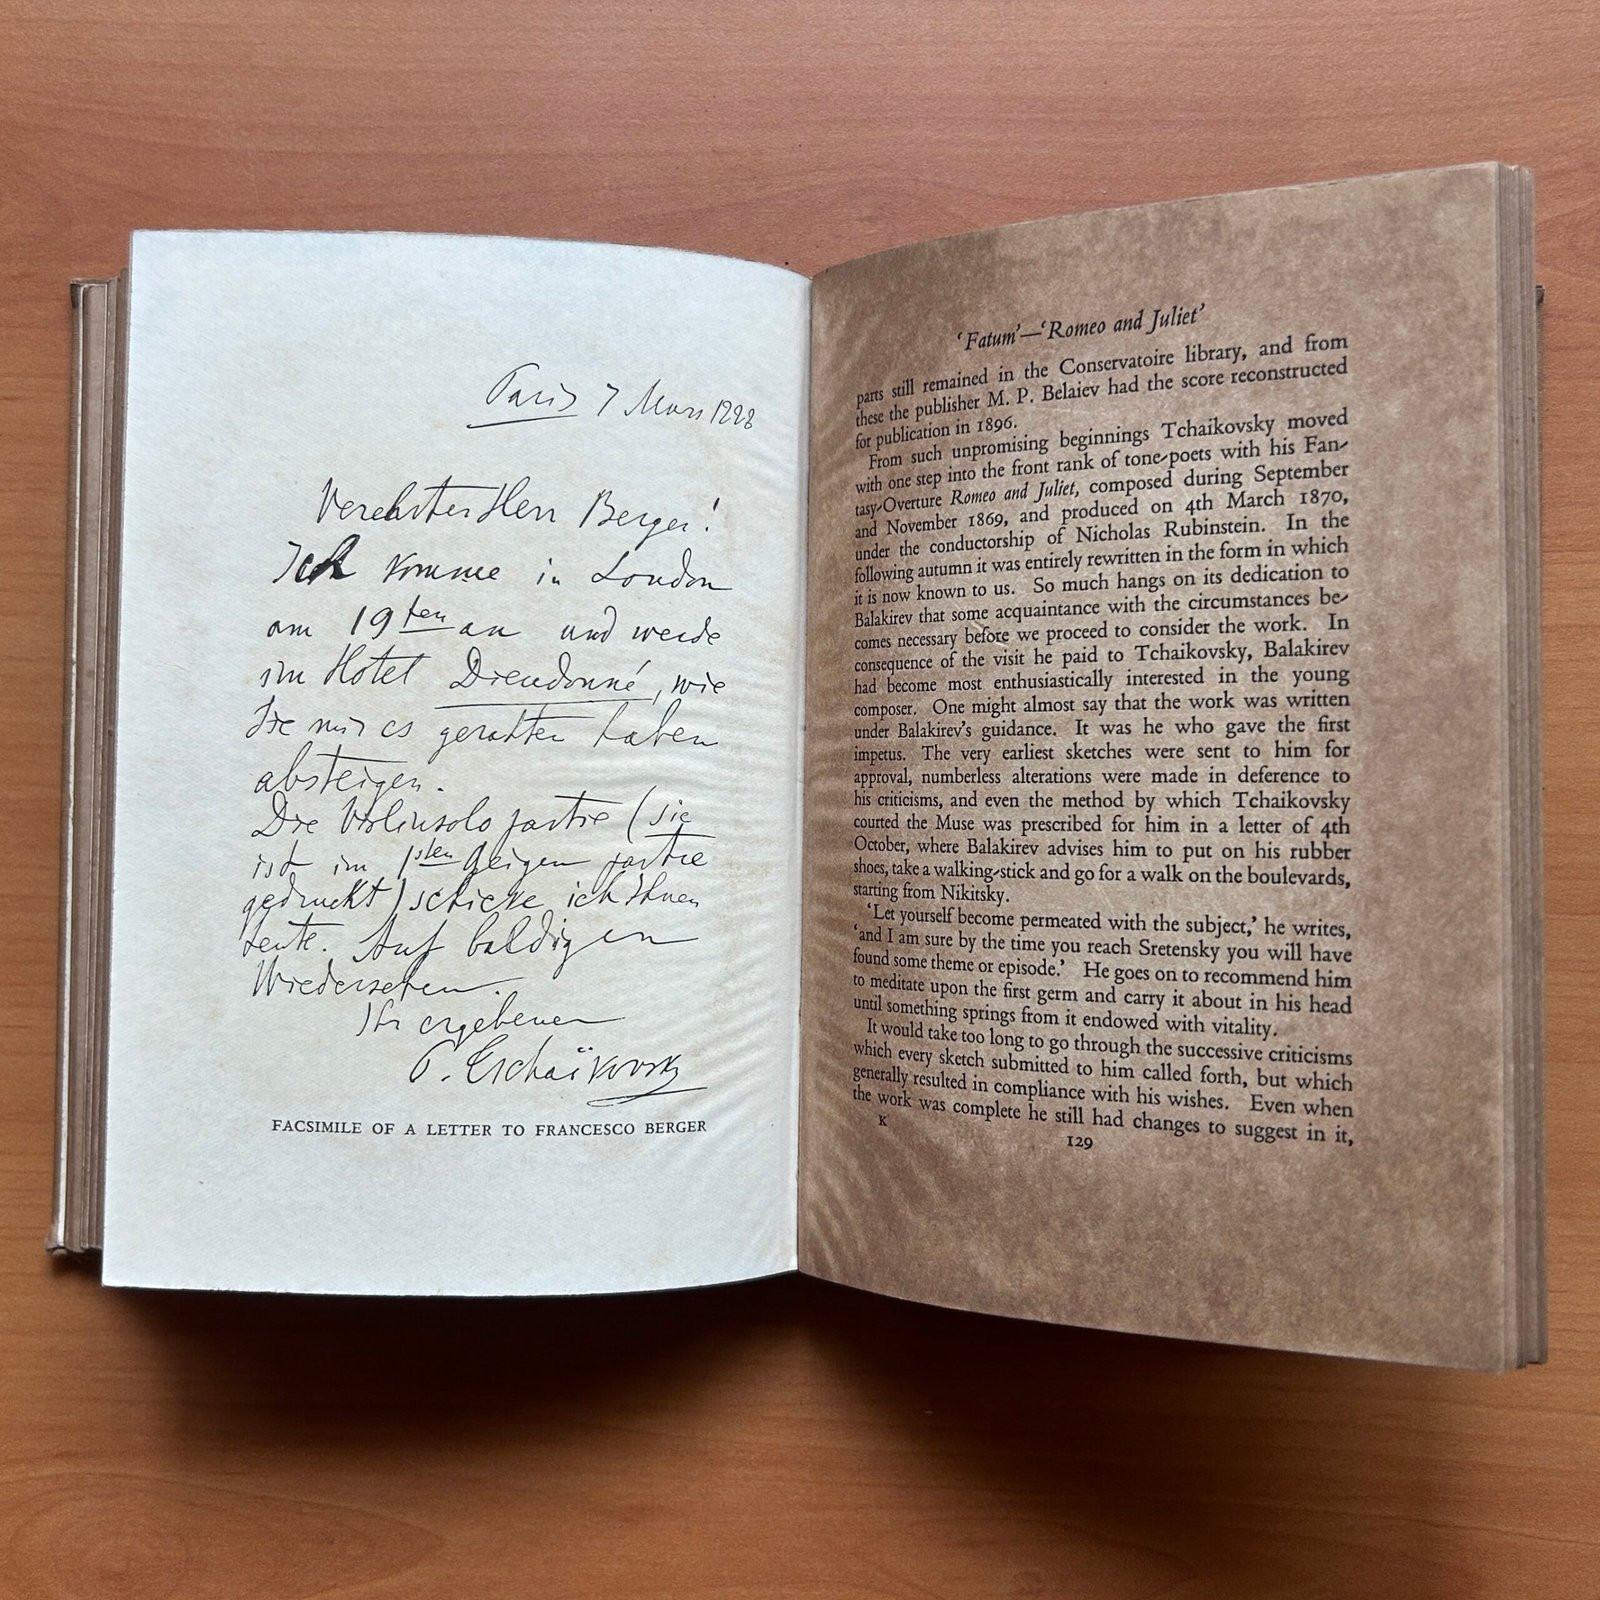 Paris 7 Mars 1888
Verehrter Herr Berger!
Ich komme in London
am 19ten an und werde
im Hotel Dieudonné, wie
Sie mir es gerathen haben
absteigen.
Die Violinsolo partie (sie
ist im 1sten Geigen partie
gedruckt) schicke ich Ihnen
heute. Auf baldigen
Wiedersehen.
Ihr ergebener
P. Tschaïkovsky
FACSIMILE OF A LETTER TO FRANCESCO BERGER
‘Fatum’—‘Romeo and Juliet’
parts still remained in the Conservatoire library, and from
these the publisher M. P. Belaiev had the score reconstructed
for publication in 1896.
From such unpromising beginnings Tchaikovsky moved
with one step into the front rank of tone-poets with his Fan-
tasy-Overture Romeo and Juliet, composed during September
and November 1869, and produced on 4th March 1870,
under the conductorship of Nicholas Rubinstein. In the
following autumn it was entirely rewritten in the form in which
it is now known to us. So much hangs on its dedication to
Balakirev that some acquaintance with the circumstances be-
comes necessary before we proceed to consider the work. In
consequence of the visit he paid to Tchaikovsky, Balakirev
had become most enthusiastically interested in the young
composer. One might almost say that the work was written
under Balakirev’s guidance. It was he who gave the first
impetus. The very earliest sketches were sent to him for
approval, numberless alterations were made in deference to
his criticisms, and even the method by which Tchaikovsky
courted the Muse was prescribed for him in a letter of 4th
October, where Balakirev advises him to put on his rubber
shoes, take a walking-stick and go for a walk on the boulevards,
starting from Nikitsky.
‘Let yourself become permeated with the subject,’ he writes,
‘and I am sure by the time you reach Sretensky you will have
found some theme or episode.’ He goes on to recommend him
to meditate upon the first germ and carry it about in his head
until something springs from it endowed with vitality.
It would take too long to go through the successive criticisms
which every sketch submitted to him called forth, but which
generally resulted in compliance with his wishes. Even when
the work was complete he still had changes to suggest in it,
K
129